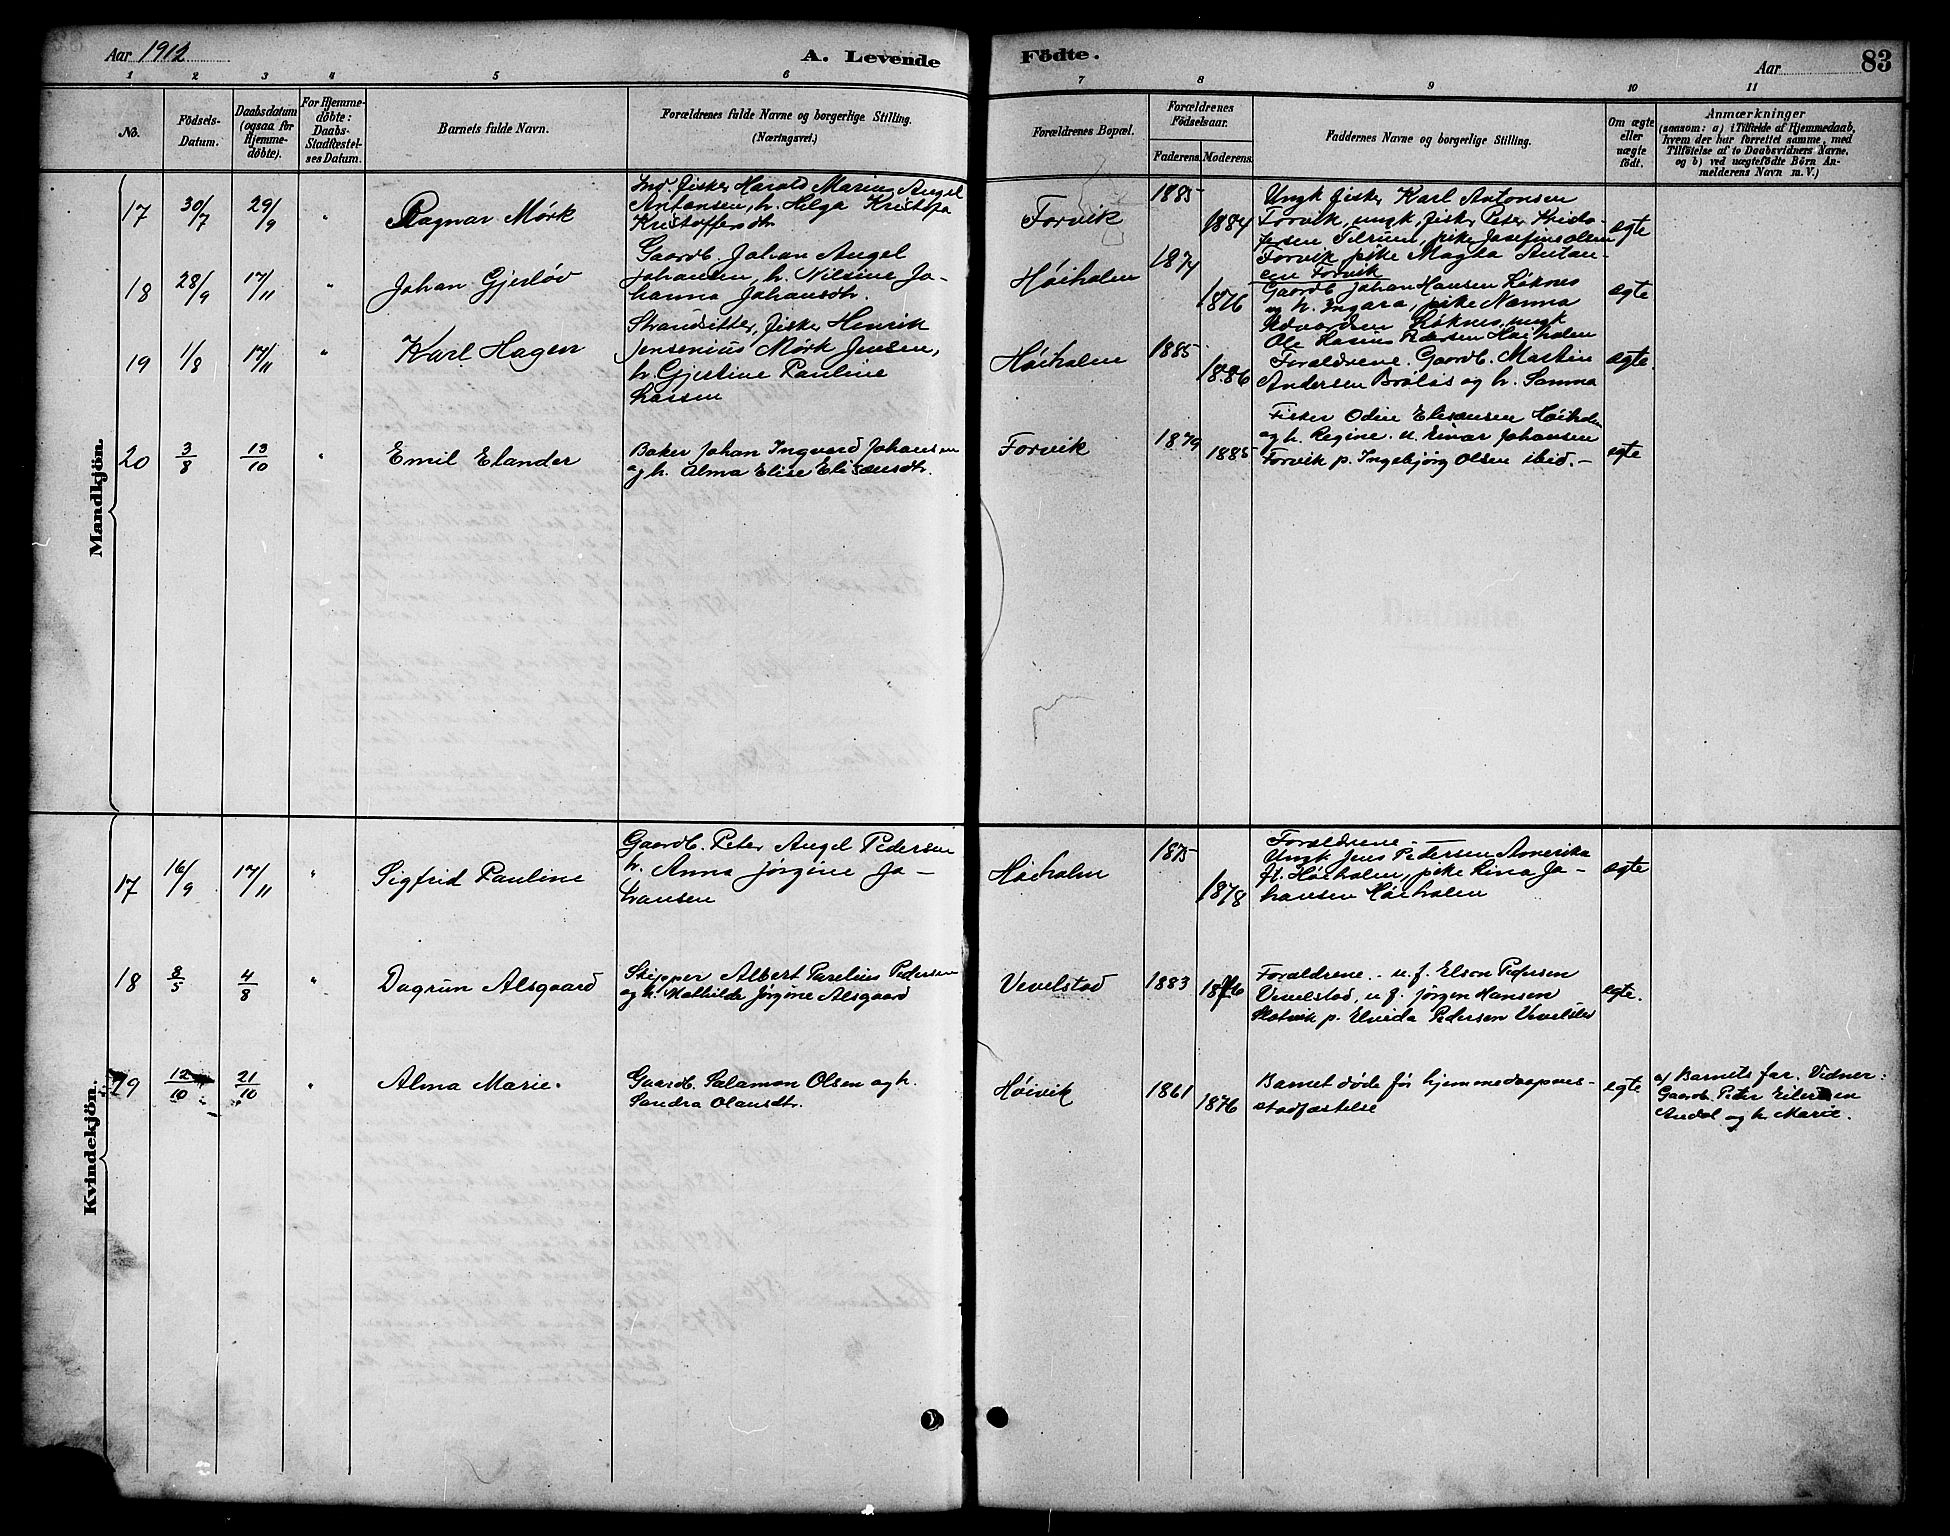 Aar 1912
A. Levende
Födte.
Aar
83
1 2 3 4 5 6 7 8 9 10 11
No.
Födsels-
Datum.
Daabsdatum
(ogsaa for
Hjemme-
döbte).
For Hjemme-
döbte:
Daabs-
Stadfæstel-
ses Datum.
Barnets fulde Navn.
Forældrenes fulde Navne og borgerlige Stilling.
(Næringsvei.)
Forældrenes Bopæl.
Forældrenes
Födselsaar.
Faderens.
Moderens.
Faddernes Navne og borgerlige Stilling.
Om ægte
eller
uægte
födt.
Anmærkninger
(saasom: a) i Tilfælde af Hjemmedaab,
hvem der har forrettet samme, med
Tilföielse af to Daabsvidners Navne.
og b) ved uægtefödte Börn An-
melderens Navn m. V.)
Mandkjön.
17 30/7 29/9 " Ragnar Mörk
Ind. Fisker Harald Marius Angel
Antonsen, h. Helga Kristofa
Kristoffersdtr
Forvik 1885 1884
Ungk fisker Karl Antonsen
Forvik, ungk. fisker Peter Kristo-
fersen Tilrum, pike Josefine Olsen
Forvik, pike Magka Anton-
sen Forvik
egte
18 28/9 17/11 " Johan Gjerløv
Gaardb. Johan Angel
Johansen, h. Nilsine Jo-
hanna Johansdtr.
Høiholm 1874 1876
Gaardb Johan Hansen Løknes
og h. Ingara, pike Nanna
Edvardsen Løknes, ungk
Ole Hasius Pedersen Høiholm
egte
19 1/8 17/11 " Karl Hagen
Strandsitter, fisker Henrik
Jensenius Mørk Jensen,
h. Gjertine Pauline
Larsen
Høiholm 1885 1886
Forældrene. Gaardb. Martin
Andersen Braløs og h. Samma
egte.
20 3/8 13/10 " Emil Elander
Baker Johan Ingvard Johansen
og h. Alma Elise Eliseusdtr.
Forvik 1879 1885
Fisker Odin Eliseussen Høiholm
og h. Regine. u. Einar Johansen
Forvik p. Ingebjørg Olsen ibid. –
egte
Kvindekjön.
17 16/9 17/11 " Sigfrid Pauline
Gaardb. Peter Angel Pedersen
h. Anna Jørgine Jo-
hansen
Høiholm 1875 1878
Forældrene –
Ungk Jens Pedersen Amerika
ft. Høiholm, pike Lina Jo-
hansen Høiholm
egte
18 8/5 4/8 " Dagrun Alsgaard
Skipper Albert Parelius Pedersen
og h. Mathilde Jørgine Alsgaard
Vevelstad 1883 1876
Forældrene. – u. f. Elson Pedersen
Vevelstad, u. f. Jørgen Hansen
Stokvik p. Elvida Pedersen Vevelstad
egte.
19 12/10 21/10 " Alma Marie.
Gaardb. Salamon Olsen og h.
Sandra Olausdtr.
Høivik 1861 1876
Barnet døde før hjemmedaapens
stadfæstelse
egte
a) Barnets far. Vidner:
Gaardb. Peter Eilersen
Andal og h. Marie.